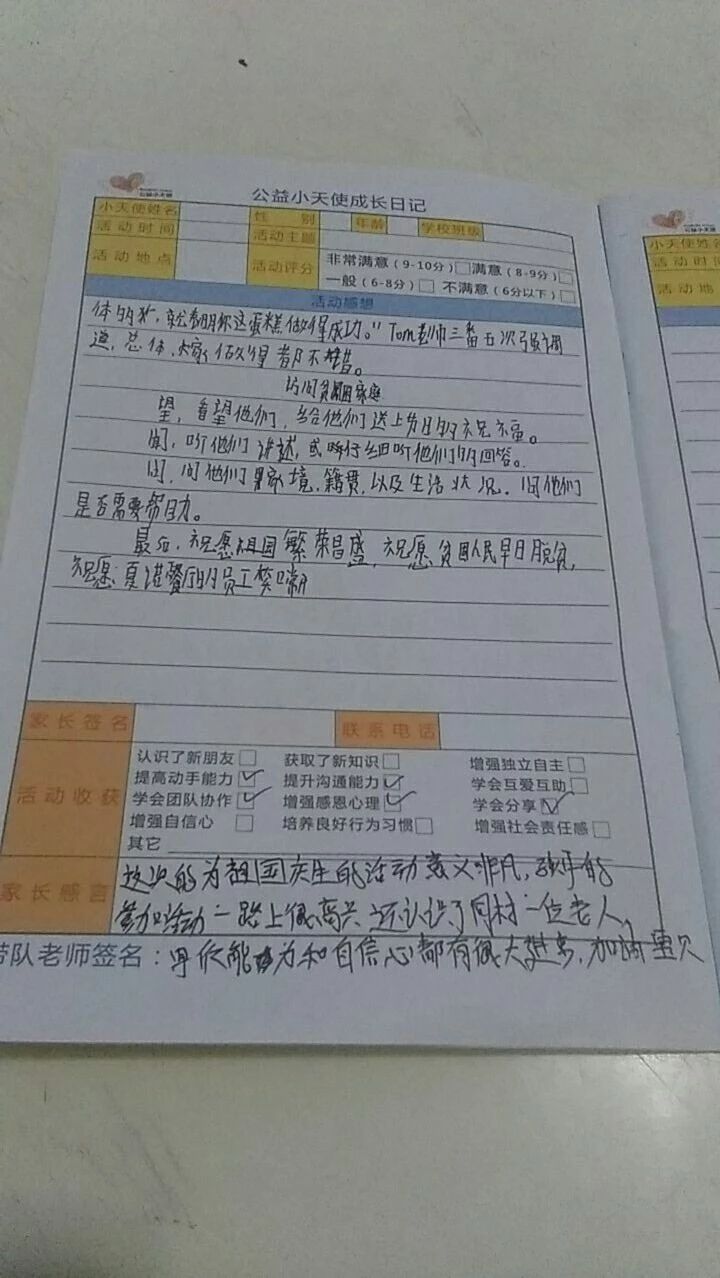 公益小天使
公益小天使成长日记
小天使姓名 性别 年龄 学校班级
活动时间 活动主题
活动地点 活动评分 非常满意（9-10分）□ 满意（8-9分）□
一般（6-8分）□ 不满意（6分以下）□
活动感想
体的我，就表明你这蛋糕做得成功。"Tom老师三番五次强调
道，总体，大家做得都不错。
访问贫困家庭
望，看望他们，给他们送上节日的祝福。
闻，听他们讲述，或听仔细听他们的回答。
问，问他们家境、籍贯，以及生活状况。问他们
是否需要帮助。
最后，祝愿祖国繁荣昌盛，祝愿贫困人民早日脱贫，
祝愿夏诺餐厅的员工笑口常
家长签名 联系电话
活动收获
认识了新朋友□ 获取了新知识□ 增强独立自主□
提高动手能力☑ 提升沟通能力☑ 学会互爱互助□
学会团队协作☑ 增强感恩心理☑ 学会分享☑
增强自信心□ 培养良好行为习惯□ 增强社会责任感□
其它
家长感言
这次的为祖国庆生的活动意义非凡，
参加活动一路上很高兴 还认识了同村一位老人，
带队老师签名：
能力和自信心都有很大进步，加油
公益小天使
小天使姓名
活动时间
活动地